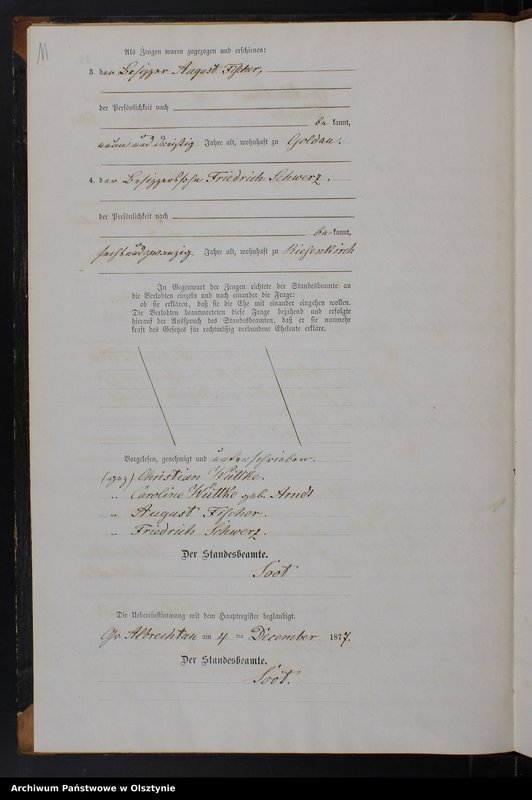 Als Zeugen waren zugezogen und erschienen:
3. der Besitzer August Fischer,
der Persönlichkeit nach
be kannt,
neun und dreißig Jahre alt, wohnhaft zu Goldau.
4. der Besitzerssohn Friedrich Schwerz,
der Persönlichkeit nach
be kannt,
sechs und zwanzig Jahre alt, wohnhaft zu Riesenkirch
In Gegenwart der Zeugen richtete der Standesbeamte an
die Verlobten einzeln und nach einander die Frage:
ob sie erklären, daß sie die Ehe mit einander eingehen wollen.
Die Verlobten beantworteten diese Frage bejahend und erfolgte
hierauf der Ausspruch des Standesbeamten, daß er sie nunmehr
kraft des Gesetzes für rechtmäßig verbundene Eheleute erkläre.
Vorgelesen, genehmigt und unterschrieben.
(gez) Christian Küttke.
„ Caroline Küttke geb. Arndt
„ August Fischer.
„ Friedrich Schwerz.
Der Standesbeamte.
Soot
Die Uebereinstimmung mit dem Hauptregister beglaubigt.
Gr. Albrechtau am 4 ten December 1877.
Der Standesbeamte.
Soot.
Archiwum Państwowe w Olsztynie